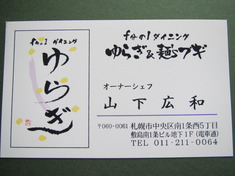 fanのlダイニング
ゆらぎ
fanのlダイニング
ゆらぎ&麺やブギ
オーナーシェフ
山下広和
〒060-0061 札幌市中央区南1条西5丁目
敷島南1条ビル地下1F(電車通)
TEL 011-211-0064